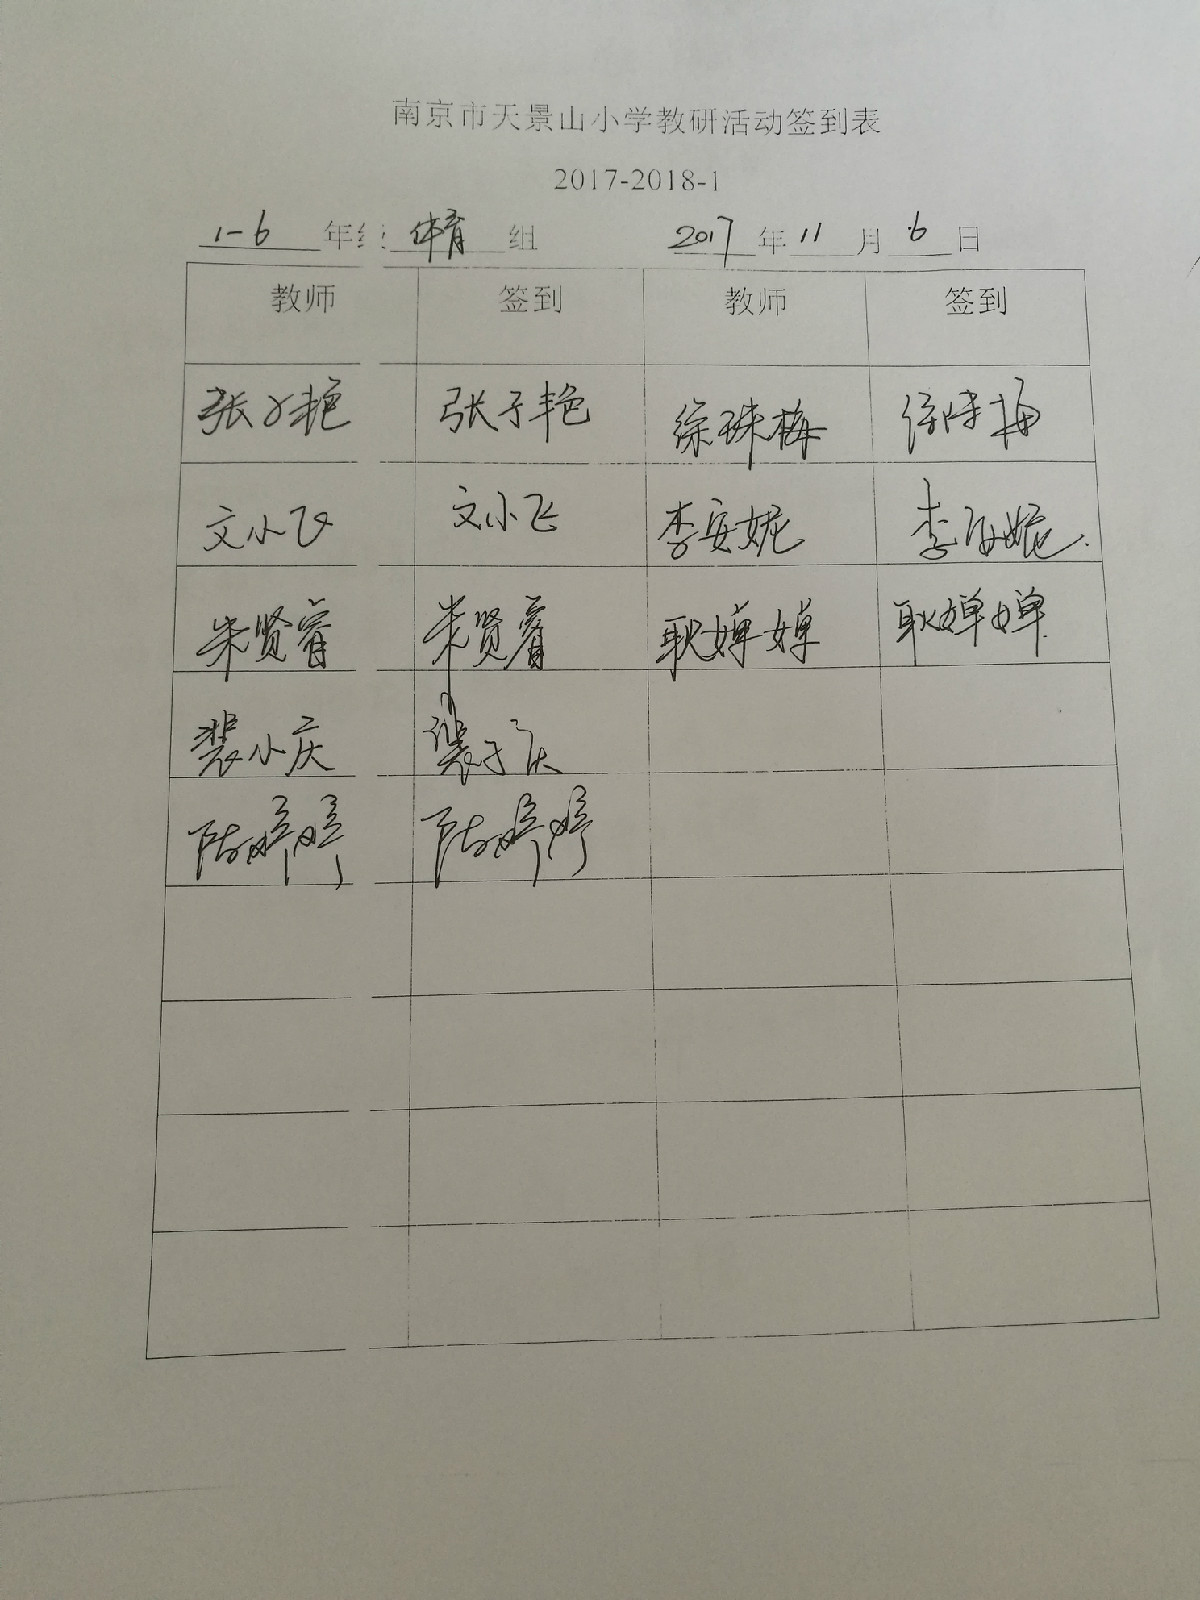 南京市天景山小学教研活动签到表
2017-2018-1
1-6 年级 体育 组 2017 年 11 月 6 日
教师 签到 教师 签到
张子艳 张子艳 徐珠梅 徐珠梅
文小飞 文小飞 李安妮 李安妮
朱贤睿 朱贤睿 耿婵婵 耿婵婵
裴小庆 裴小庆
陆婷婷 陆婷婷